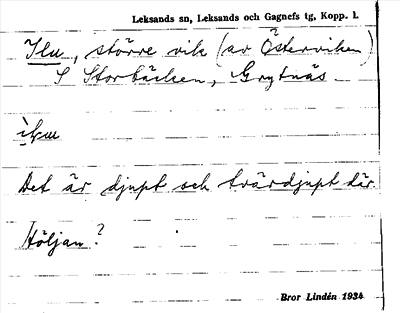 Leksands sn, Leksands och Gagnefs tg, Kopp. l.
Ilu, större vik (av Österviken)
S Storbäcken, Grytnäs
Det är djupt och tvärdjupt där.
Höljan?
Bror Lindén 1934